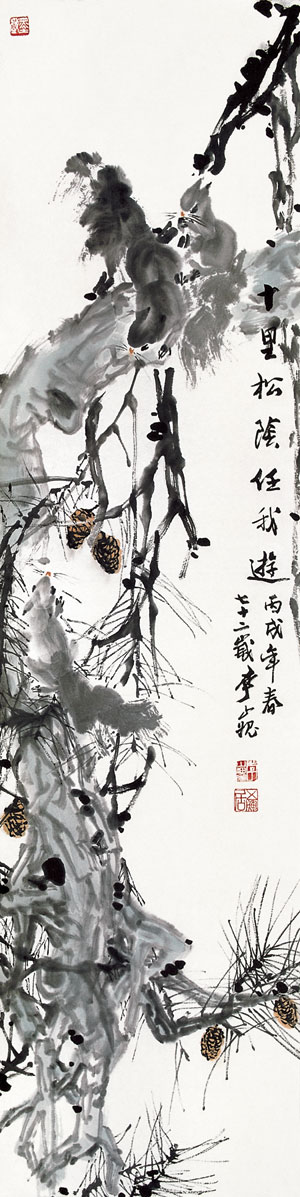 十里松蔭任我遊
丙戌年春
七十二歲李